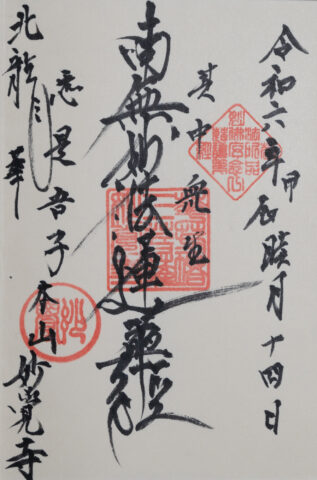 令和六年甲辰臘月十四日
其中衆生
南無妙法蓮華経
悉是吾子
本山妙覺寺
北龍華